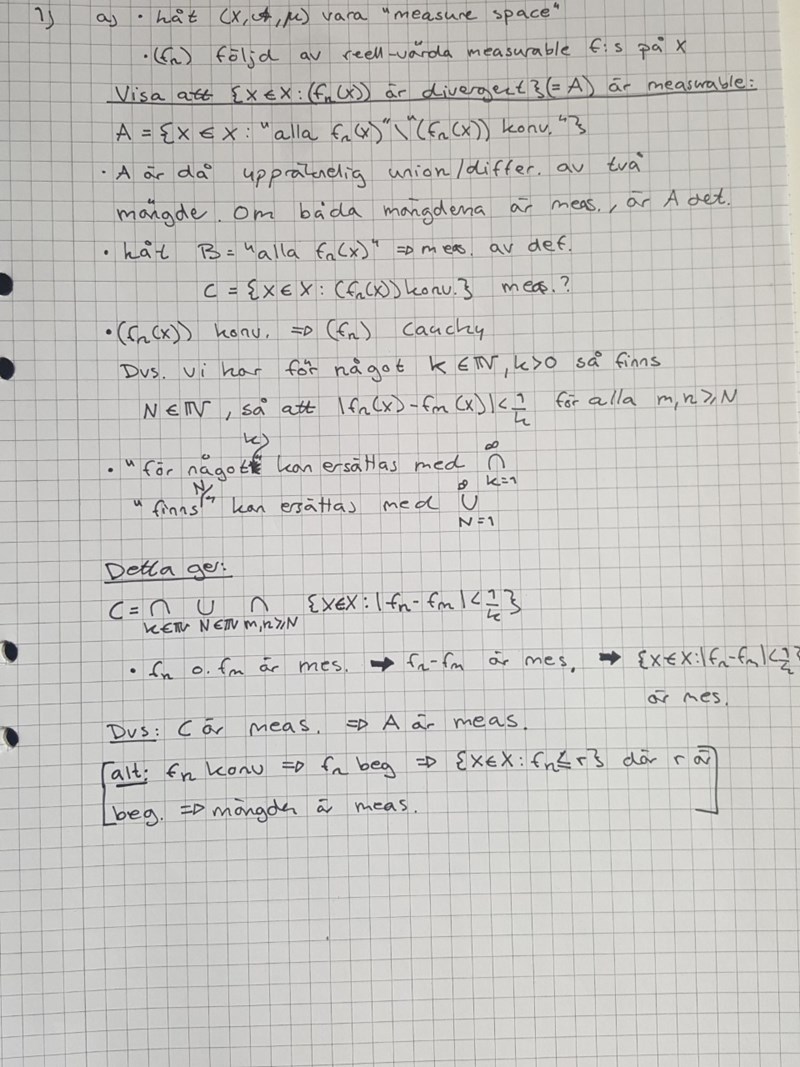 1) a) · Låt (X, 𝒜, μ) vara "measure space"
· (fn) följd av reell-värda measurable f:s på X
Visa att {x ∈ X : (fn(x)) är divergent} (= A) är measurable:
A = {x ∈ X : "alla fn(x)" \ "(fn(x)) konv."}
· A är då uppräknelig union/differ. av två
mängde. Om båda mängderna är meas., är A det.
· Låt B = "alla fn(x)" ⇒ meas. av def.
C = {x ∈ X : (fn(x)) konv.} meas.?
· (fn(x)) konv. ⇒ (fn) Cauchy
Dvs. vi har för något k ∈ ℕ, k>0 så finns
N ∈ ℕ, så att |fn(x) - fm(x)| < 1/k för alla m, n ≥ N
· "för något k" kan ersättas med ∩ k=1 ∞
"finns N" kan ersättas med ∪ N=1 ∞
Detta ger:
C = ∩ k∈ℕ ∪ N∈ℕ ∩ m,n≥N {x∈X : |fn - fm| < 1/k}
· fn o. fm är mes. → fn-fm är mes. → {x∈X : |fn-fm| < 1/k}
är mes.
Dvs: C är meas. ⇒ A är meas.
[alt: fn konv ⇒ fn beg ⇒ {x∈X : fn ≤ r} där r är
beg. ⇒ mängden är meas.]